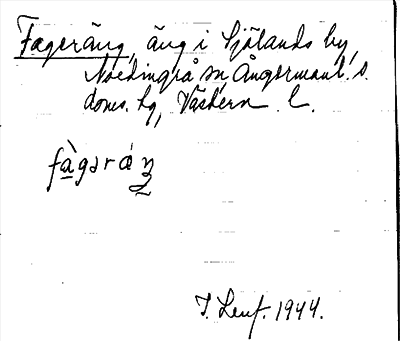 Fageräng, äng i Själands by,
Nordingrå sn, Ångermanl. s.
doms. hg, Västern. l.
fàgəráŋ
1944.